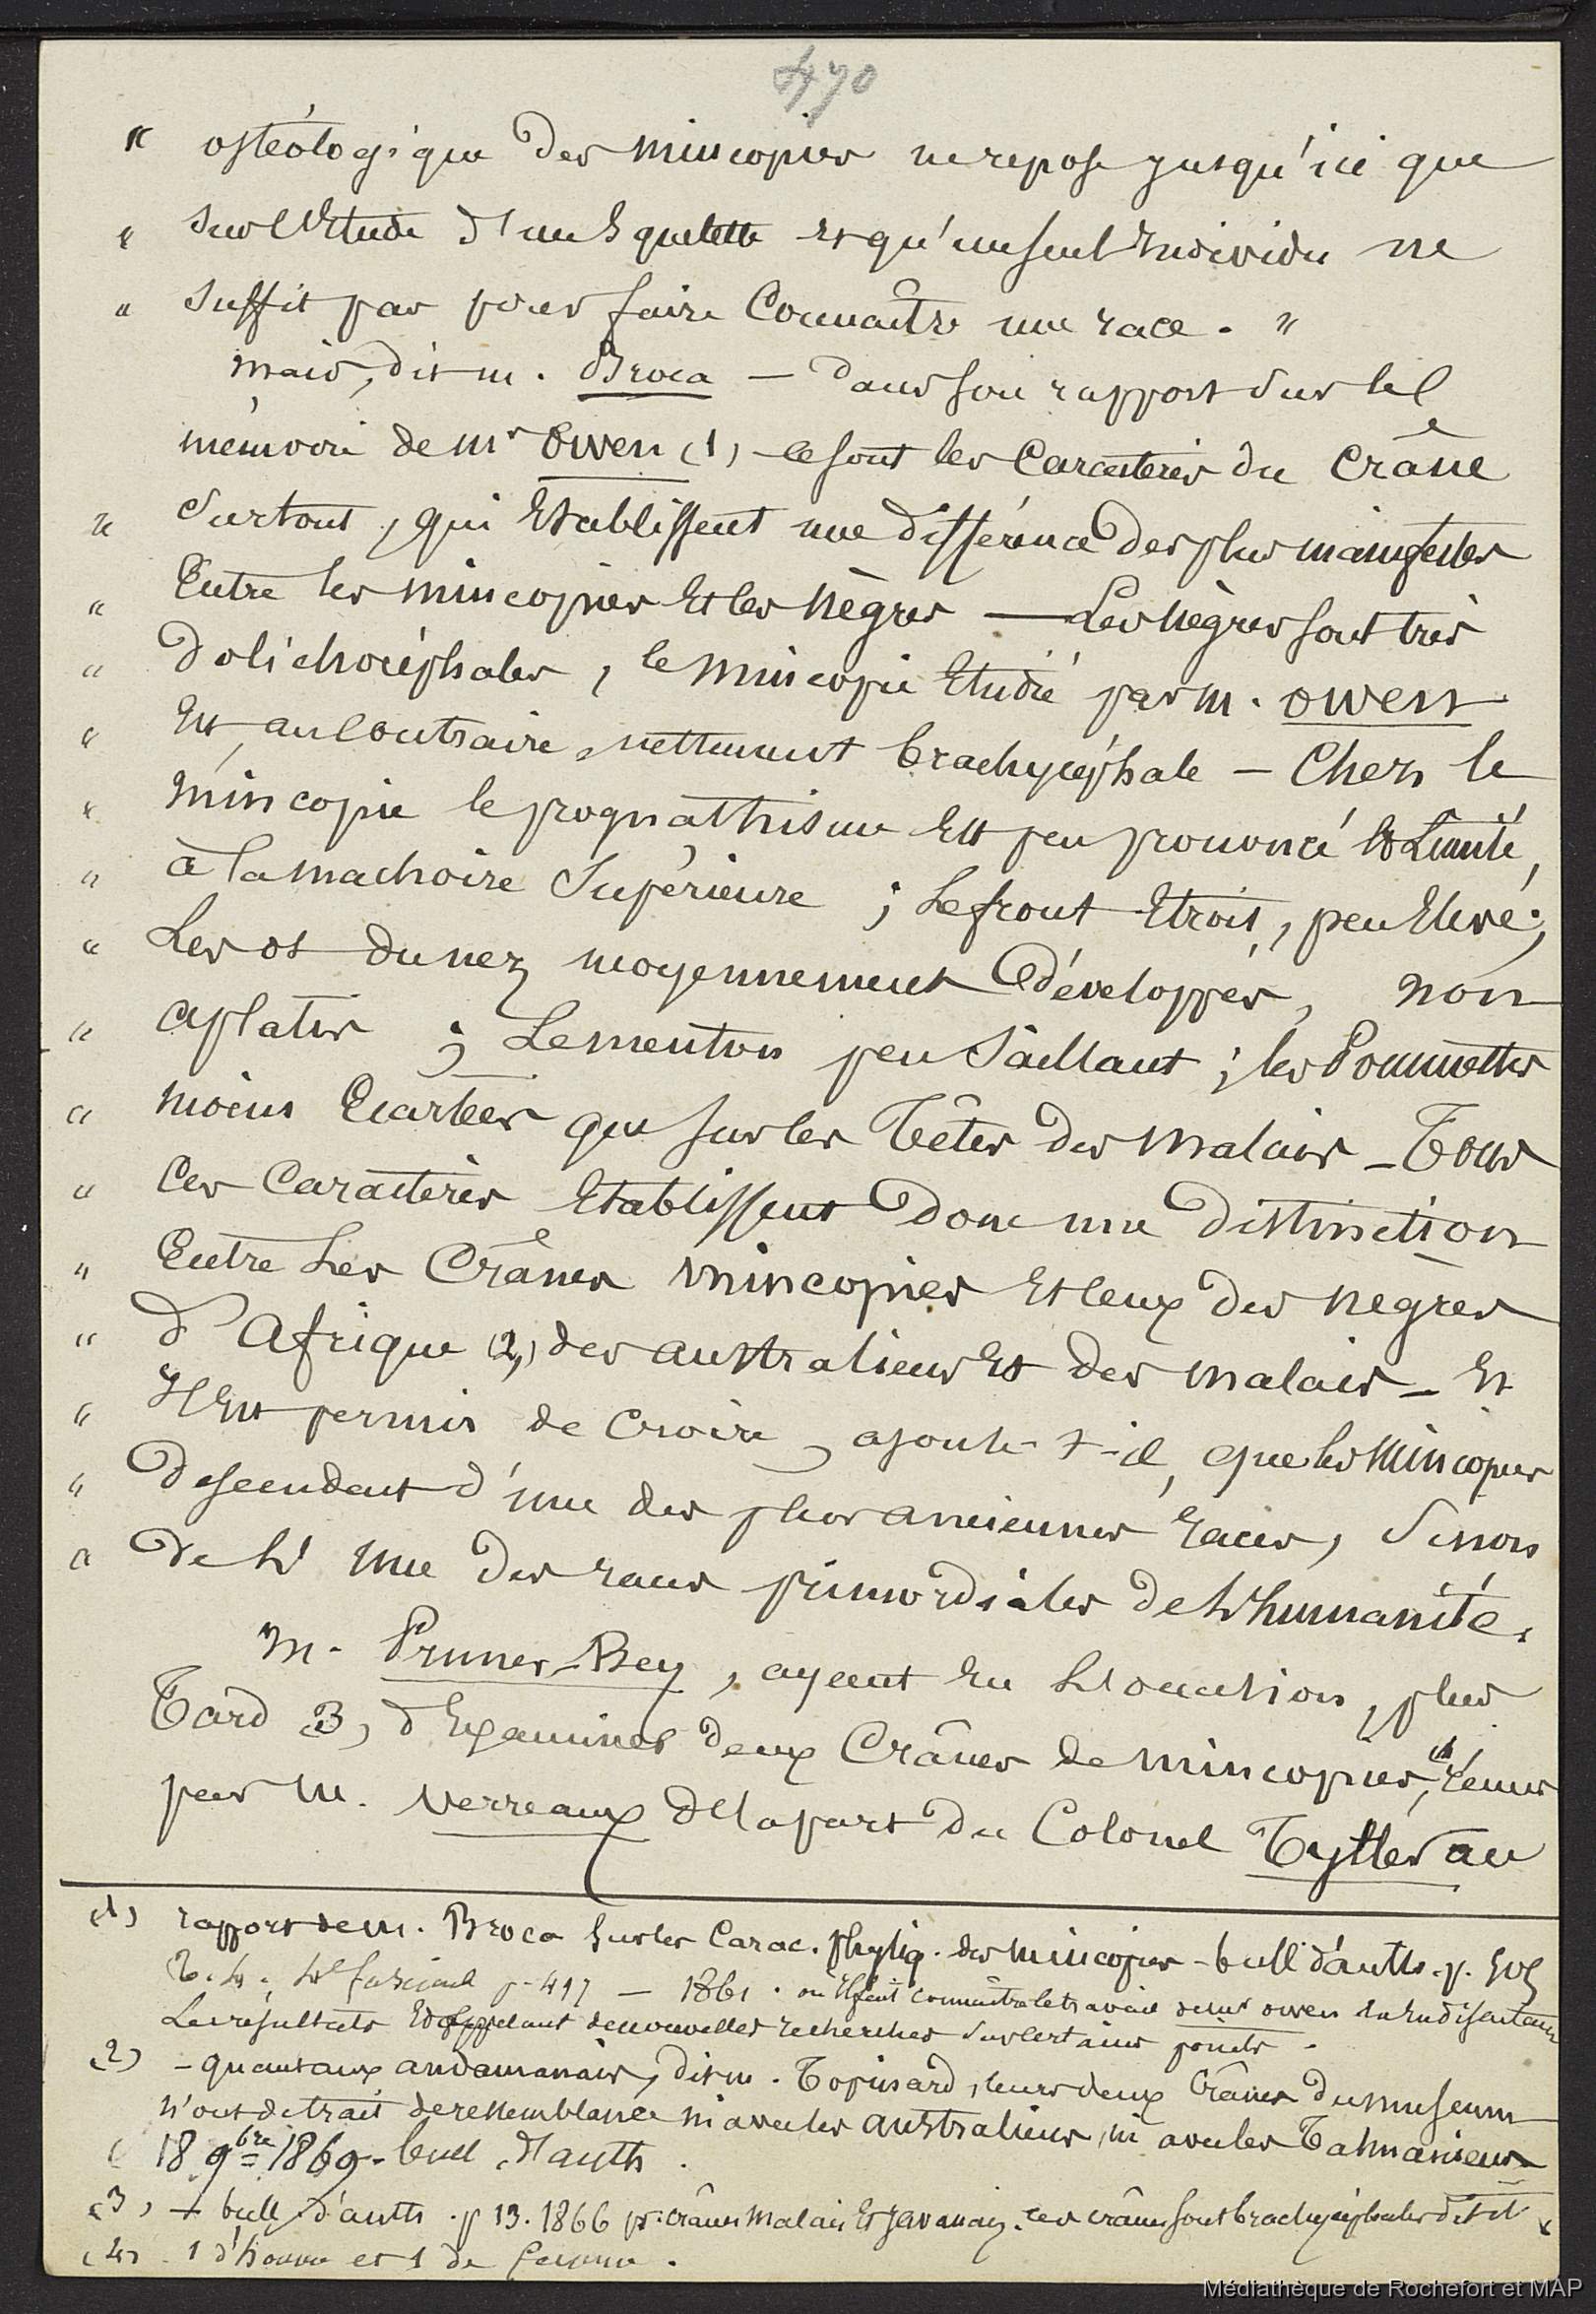 470
" ostéologique des mincopies ne repose jusqu'ici que
" sur l'Etude d'un Squelette et qu'un seul Individu ne
" suffit pas pour faire Connaître une race. "
mais, dit m. Broca — dans son rapport sur le
mémoire de mr Owen (1) — ce sont les Caractères du Crâne
" Surtout, qui Etablissent une différence des plus manifestes
" Entre les mincopies Et les Nègres — Les Nègres sont très
" dolichocéphales, le mincopie Etudié par m. Owen
" Est, au Contraire, nettement brachycéphale — Chez le
" mincopie le prognathisme Est peu prononcé Et Limité,
" à la machoire Supérieure ; Le front Etroit, peu Elevé ;
" Les os du nez moyennement développés, non
" aplatis ; Le menton peu Saillant ; les Pommettes
" moins Ecartées que sur les Têtes des malais — Tous
" Ces Caractères Etablissent donc une distinction
" Entre Les Crânes mincopies Et Ceux des nègres
" d'Afrique (2) des australiens Et des malais — Et
" Il Est permis de Croire, ajoute-t-il, que les mincopies
" descendent d'une des plus anciennes races, Sinon
" de l'une des races primordiales de l'humanité.
M. Pruner-Bey, ayant Eu l'occasion, plus
Tard (3), d'Examiner deux Crânes de mincopies, (4) remis
par m. Verreaux de la part du Colonel Tytler au
(1) rapport de m. Broca sur les Carac. physiq. des mincopies — bull. d'anth. p.
T. 2. fascicule p. 497 — 1861. où Il fait connaître le travail de mr Owen En En discutant
Les résultats Et appelant de nouvelles recherches sur certains points.
(2) — quant aux andamanais, dit m. Topinard, leurs deux Crânes du museum
n'ont de trait de ressemblance ni avec les australiens, ni avec les Tasmaniens
( 18 9bre 1869. bull. d'anth.
(3) — bull. d'anth. p 13. 1866 pr. crânes malais Et javanais. ces crânes sont brachycéphales dit-il
(4) 1 d'homme et 1 de femme.
Médiathèque de Rochefort et MAP